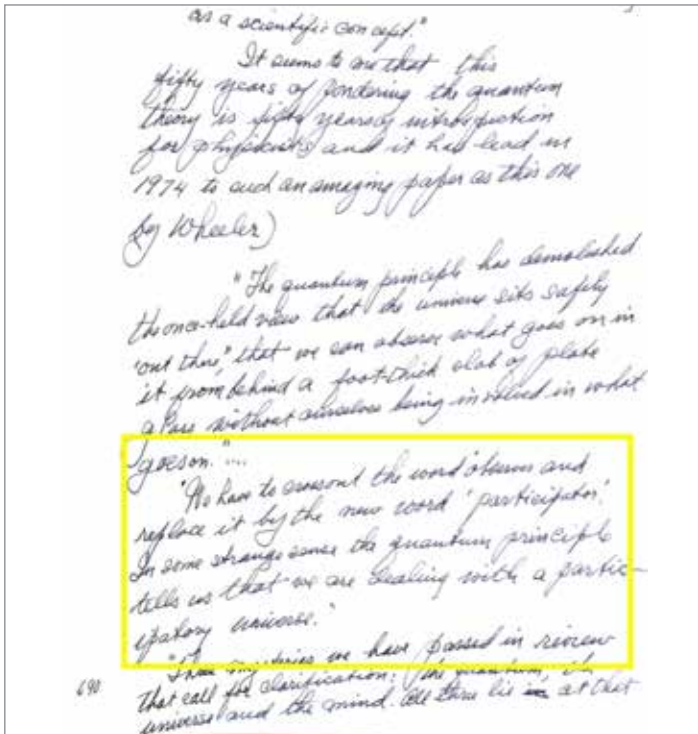 as a scientific concept."
It seems to me that this
fifty years of pondering the quantum
theory is fifty years of introspection
for physicists and it has lead in
1974 to such an amazing paper as this one
(by Wheeler)
"The quantum principle has demolished
the once-held view that the universe sits safely
'out there', that we can observe what goes on in
it from behind a foot-thick slab of plate
glass without ourselves being involved in what
goes on."...
"We have to cross out the word 'observer' and
replace it by the new word 'participator'.
In some strange sense the quantum principle
tells us that we are dealing with a partic-
ipatory universe."
"Three mysteries we have passed in review
that call for clarification: the quantum, the
universe and the mind. All three lie at that
690